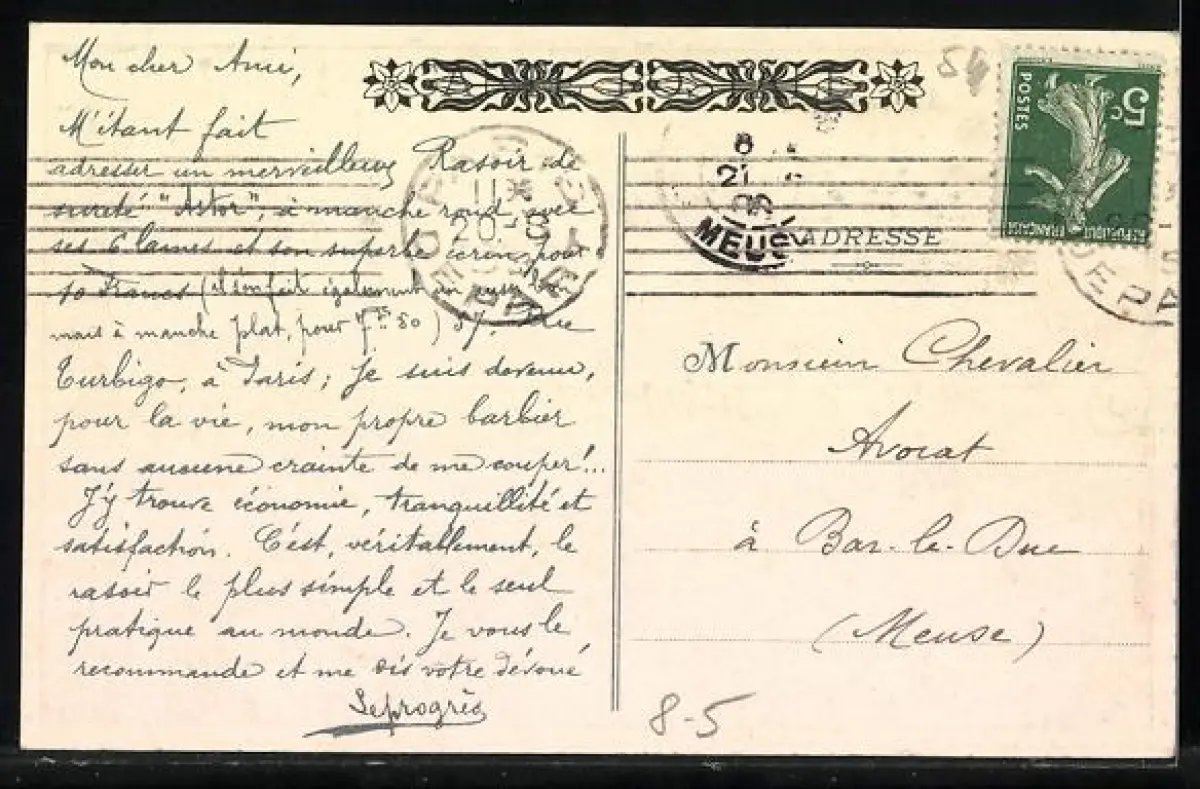 Mon cher Ami,
M'étant fait
adresser un merveilleux Rasoir de
sureté "Astor", à manche rond, avec
ses 6 lames et son superbe écrin, pour
10 Francs (il s'en fait également un aussi bon
mais à manche plat, pour 7 frs 50) 57, Rue
Turbigo, à Paris; je suis devenu,
pour la vie, mon propre barbier
sans aucune crainte de me couper!...
J'y trouve économie, tranquillité et
satisfaction. C'est, véritablement, le
rasoir le plus simple et le seul
pratique au monde. Je vous le
recommande et me dis votre dévoué
Leprogrès
CARTE POSTALE
54
5c
POSTES
RÉPUBLIQUE FRANÇAISE
11
20-8
8
21
MEUSE
ADRESSE
Monsieur Chevalier
Avocat
à Bar-le-Duc
(Meuse)
8-5